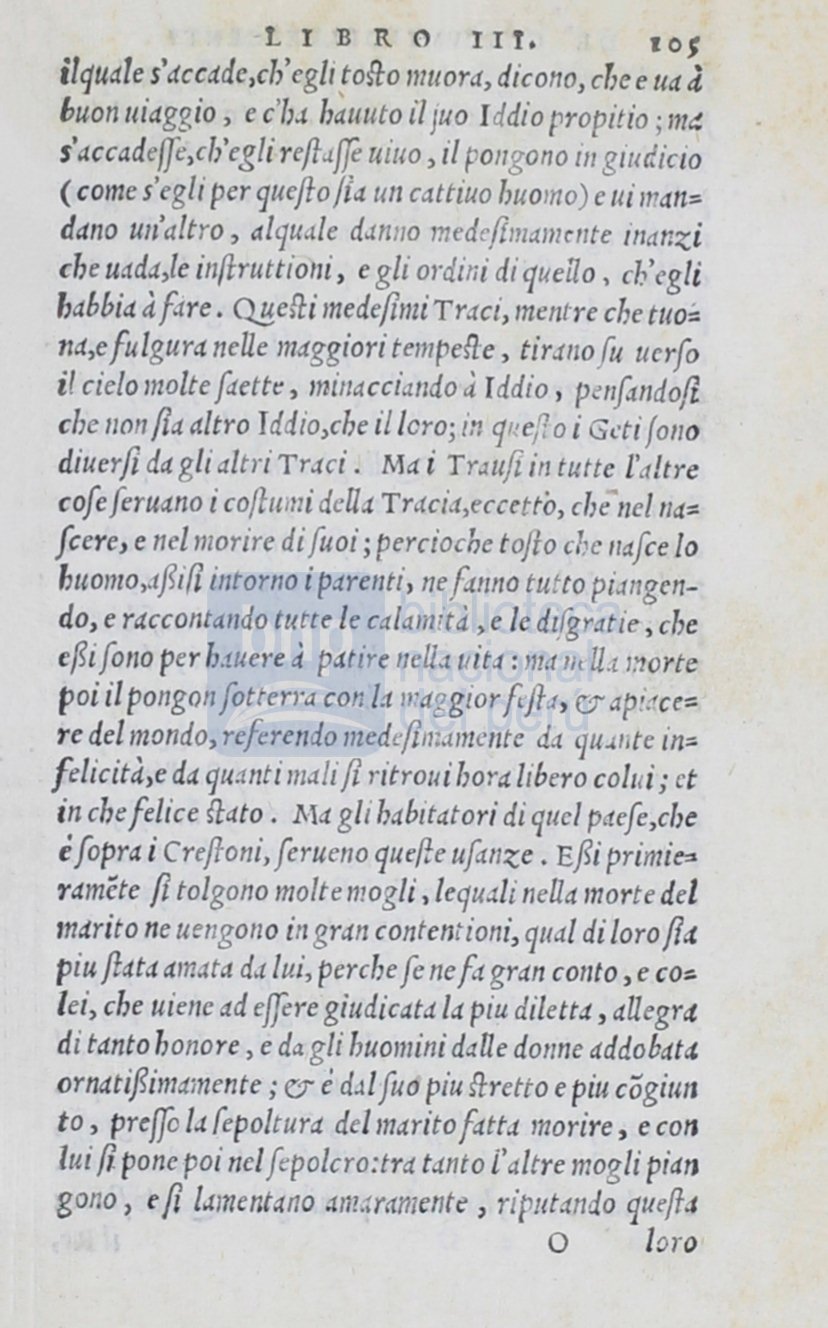 LIBRO III. 105
ilquale s'accade,ch'egli tosto muora, dicono, che e ua à
buon uiaggio, e c'ha hauuto il suo Iddio propitio; ma
s'accadesse,ch'egli restasse uiuo, il pongono in giudicio
(come s'egli per questo sia un cattiuo huomo) e ui man=
dano un'altro, alquale danno medesimamente inanzi
che uada,le instruttioni, e gli ordini di quello, ch'egli
habbia à fare. Questi medesimi Traci, mentre che tuo=
na,e fulgura nelle maggiori tempeste, tirano su uerso
il cielo molte saette, minacciando à Iddio, pensandosi
che non sia altro Iddio,che il loro; in questo i Geti sono
diuersi da gli altri Traci. Ma i Trausi in tutte l'altre
cose seruano i costumi della Tracia,eccetto, che nel na=
scere, e nel morire di suoi; percioche tosto che nasce lo
huomo,aßisi intorno i parenti, ne fanno tutto piangen-
do, e raccontando tutte le calamità, e le disgratie, che
eßi sono per hauere à patire nella uita: ma nella morte
poi il pongon sotterra con la maggior festa, & apiace=
re del mondo, referendo medesimamente da quante in=
felicità,e da quanti mali si ritroui hora libero colui; et
in che felice stato. Ma gli habitatori di quel paese,che
è sopra i Crestoni, serueno queste usanze. Eßi primie=
ramẽte si tolgono molte mogli, lequali nella morte del
marito ne uengono in gran contentioni, qual di loro sia
piu stata amata da lui, perche se ne fa gran conto, e co=
lei, che uiene ad essere giudicata la piu diletta, allegra
di tanto honore, e da gli huomini dalle donne addobata
ornatißimamente; & è dal suo piu stretto e piu cõgiun
to, presso la sepoltura del marito fatta morire, e con
lui si pone poi nel sepolcro:tra tanto l'altre mogli pian
gono, e si lamentano amaramente, riputando questa
O loro
bnp biblioteca
nacional
del perú